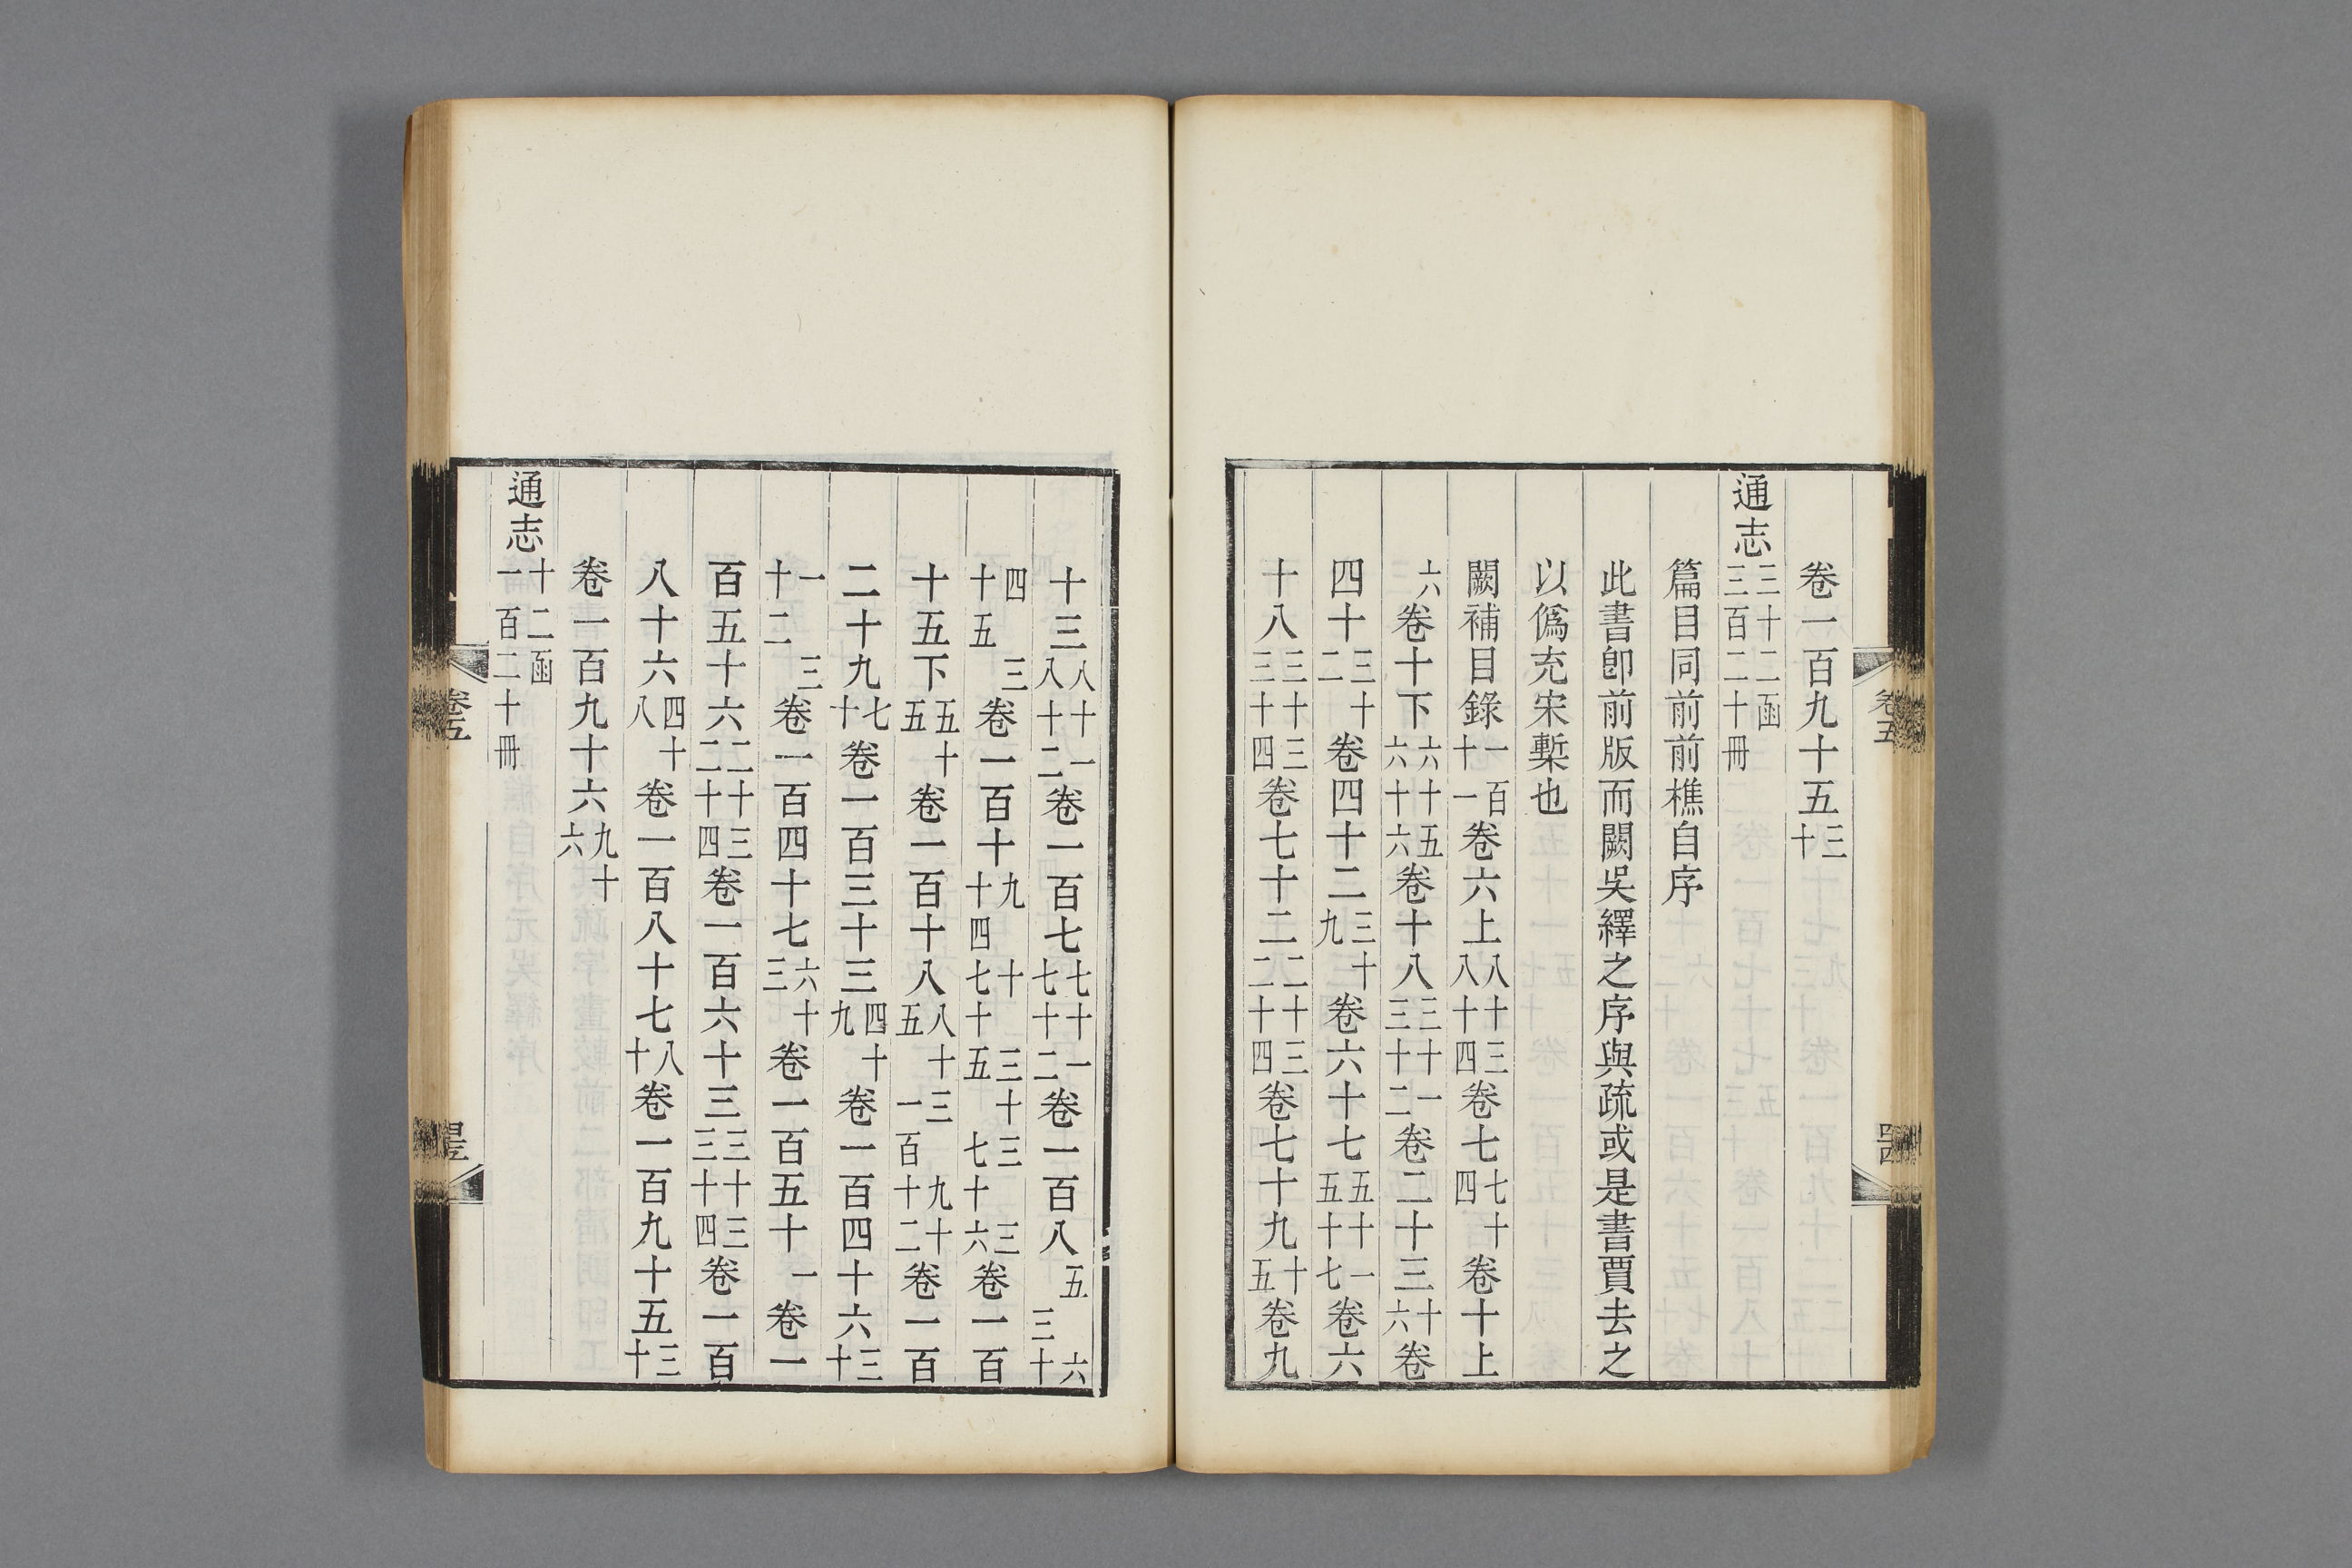 卷五
卷一百九十五三十
通志三十二函三百二十冊
篇目同前前樵自序
此書卽前版而闕吳繹之序與疏或是書賈去之
以僞充宋槧也
闕補目錄一百十一卷六上八十三八十四卷七七十四卷十上
六卷十下六十五六十六卷十八三十一三十二卷二十三十六卷
四十三十二卷四十二三十九卷六十七五十一五十七卷六
十八三十三三十四卷七十二二十三二十四卷七十九十五卷九
十三八十一八十二卷一百七七十一七十二卷一百八五六三十
四三十五卷一百十九十三十三三十四七十五七十六卷一百
十五下五十五卷一百十八八十三九十五一百十二卷一百
二十九七十卷一百三十三四十九卷一百四十六三十
一三十二卷一百四十七六十三卷一百五十一卷一
百五十六二十三二十四卷一百六十三三十三三十四卷一百
八十六四十八卷一百八十七八十卷一百九十五三十
卷一百九十六九十六
通志十二函一百二十冊
卷五